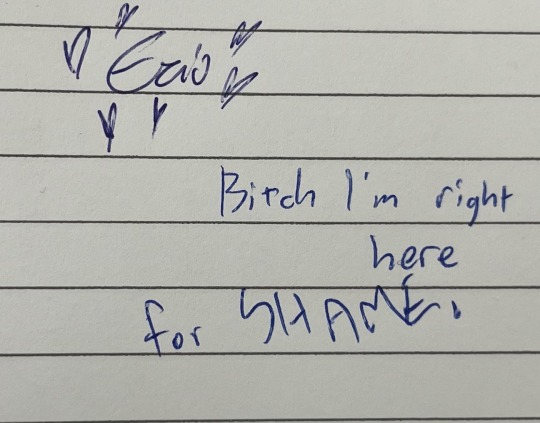 Ezio
Bitch I'm right
here
for SHAME.